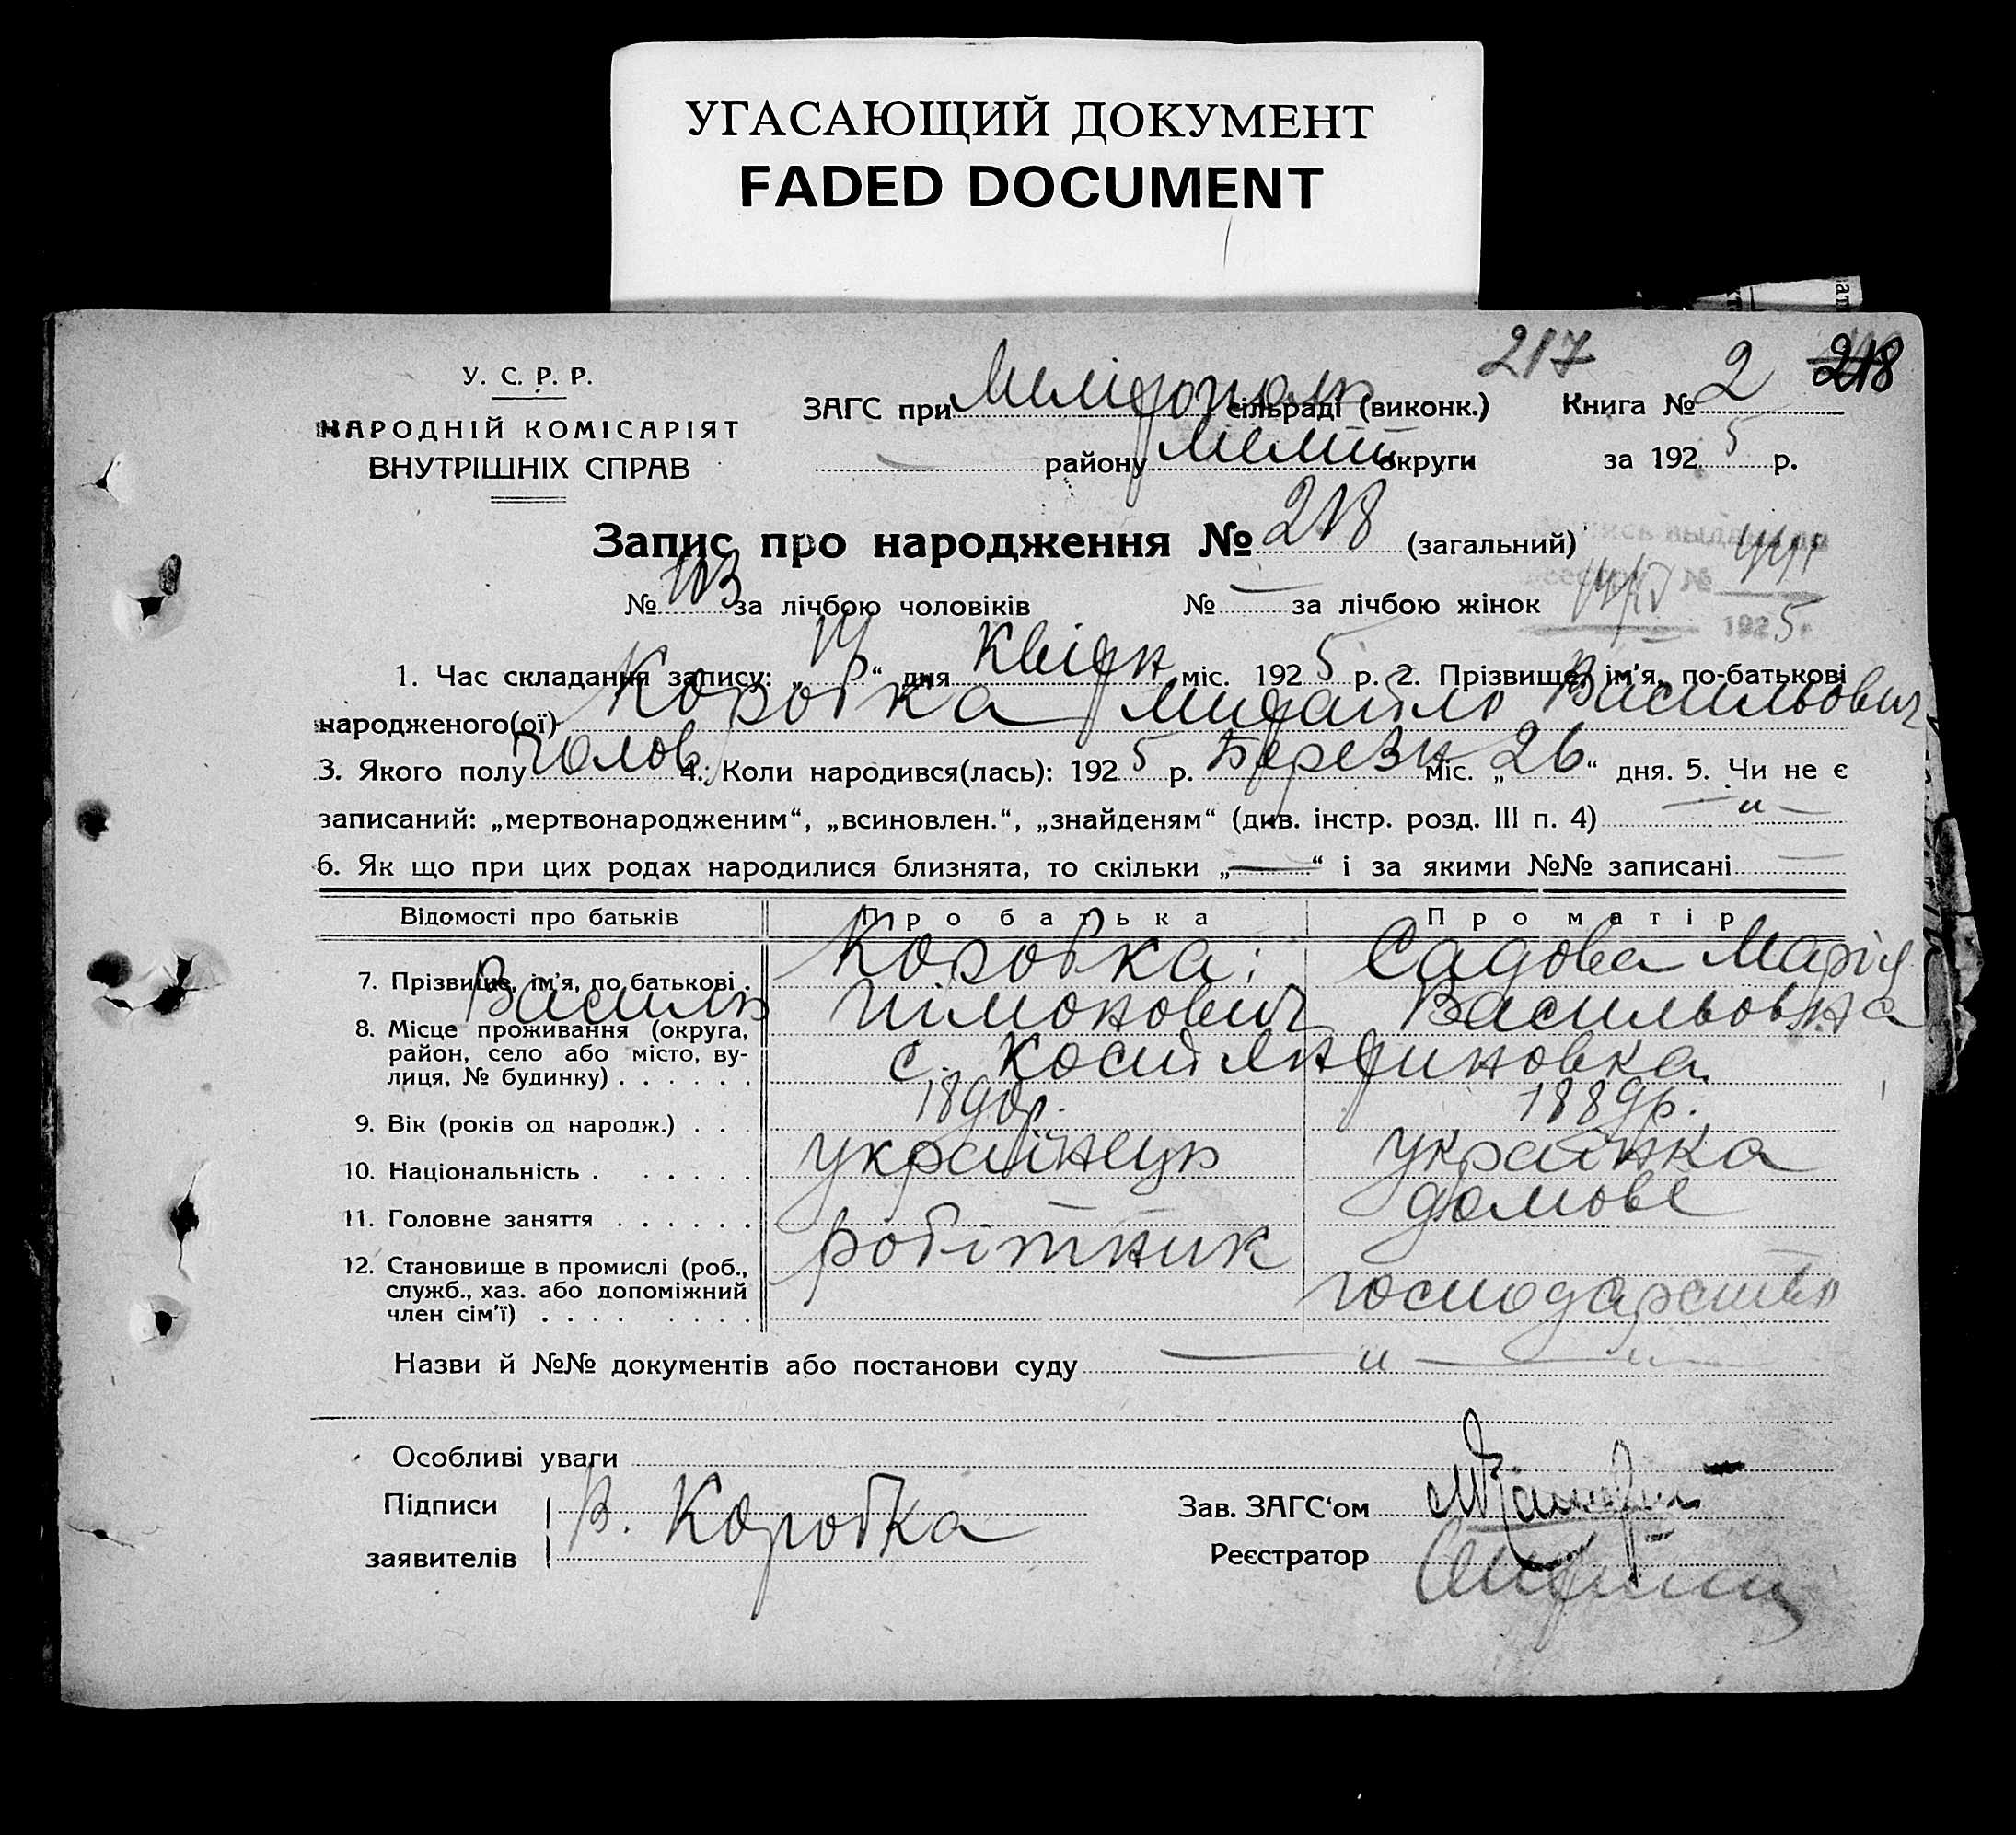 УГАСАЮЩИЙ ДОКУМЕНТ
FADED DOCUMENT
217
У. С. Р. Р.
НАРОДНІЙ КОМІСАРІЯТ
ВНУТРІШНІХ СПРАВ
ЗАГС при сільраді (виконк.) Книга № 2 218
— району Меліт округи за 1925 р.
Запис про народження № 218 (загальний)
№ 103 за лічбою чоловіків № — за лічбою жінок
1925 г
1. Час складання запису: „ “ дня Квітн міс. 1925 р. 2. Прізвище, ім'я, по-батькові
народженого(ої) Коробка Михайло Васильович
3. Якого полу Чолов. 4. Коли народився(лась): 1925 р. Березн міс. „26“ дня. 5. Чи не є
записаний: „мертвонародженим“, „всиновлен.“, „знайденям“ (див. інстр. розд. III п. 4) — „ —
6. Як що при цих родах народилися близнята, то скільки „—“ і за якими №№ записані —
Відомості про батьків Про батька Про матір
7. Прізвище, ім'я, по батькові . Коробка Садова Марія
Василь Тімонович Васильовна
8. Місце проживання (округа, район, село або місто, вулиця, № будинку) . . . . . . с. Костянтиновка
9. Вік (років од народж.) . . . 1890р. 1889р.
10. Національність . . . . . . українець українка
11. Головне заняття . . . . . . робітник домове
12. Становище в промислі (роб., служб., хаз. або допоміжний член сім'ї) . . . . . . . . господарство
Назви й №№ документів або постанови суду — „ — „ —
Особливі уваги
Підписи заявителів В. Коробка
Зав. ЗАГС‘ом
Реєстратор